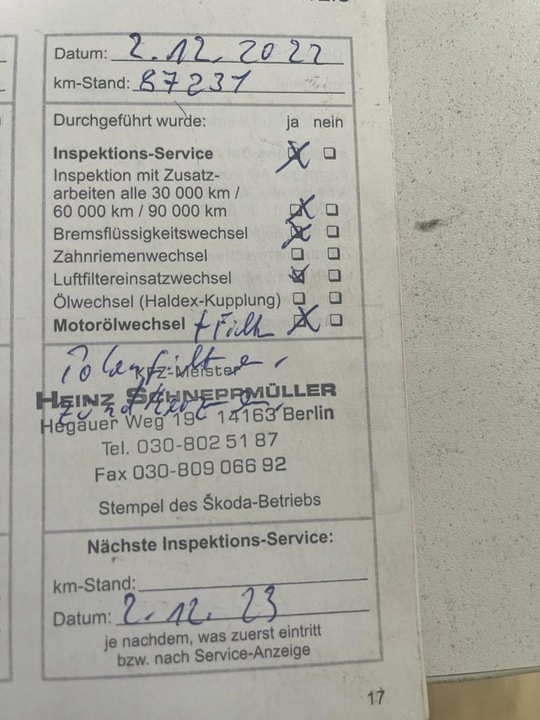 Datum: 2.12.2022
km-Stand: 87231
Durchgeführt wurde: ja nein
Inspektions-Service
Inspektion mit Zusatz-
arbeiten alle 30 000 km /
60 000 km / 90 000 km
Bremsflüssigkeitswechsel
Zahnriemenwechsel
Luftfiltereinsatzwechsel
Ölwechsel (Haldex-Kupplung)
Motorölwechsel + Filt
Pollenfilter,
KFZ-Meister
HEINZ SCHNEPPMÜLLER
Zündkerzen,
Hegauer Weg 19 14163 Berlin
Tel. 030-802 51 87
Fax 030-809 066 92
Stempel des Škoda-Betriebs
Nächste Inspektions-Service:
km-Stand:
Datum: 2.12.23
je nachdem, was zuerst eintritt
bzw. nach Service-Anzeige
17